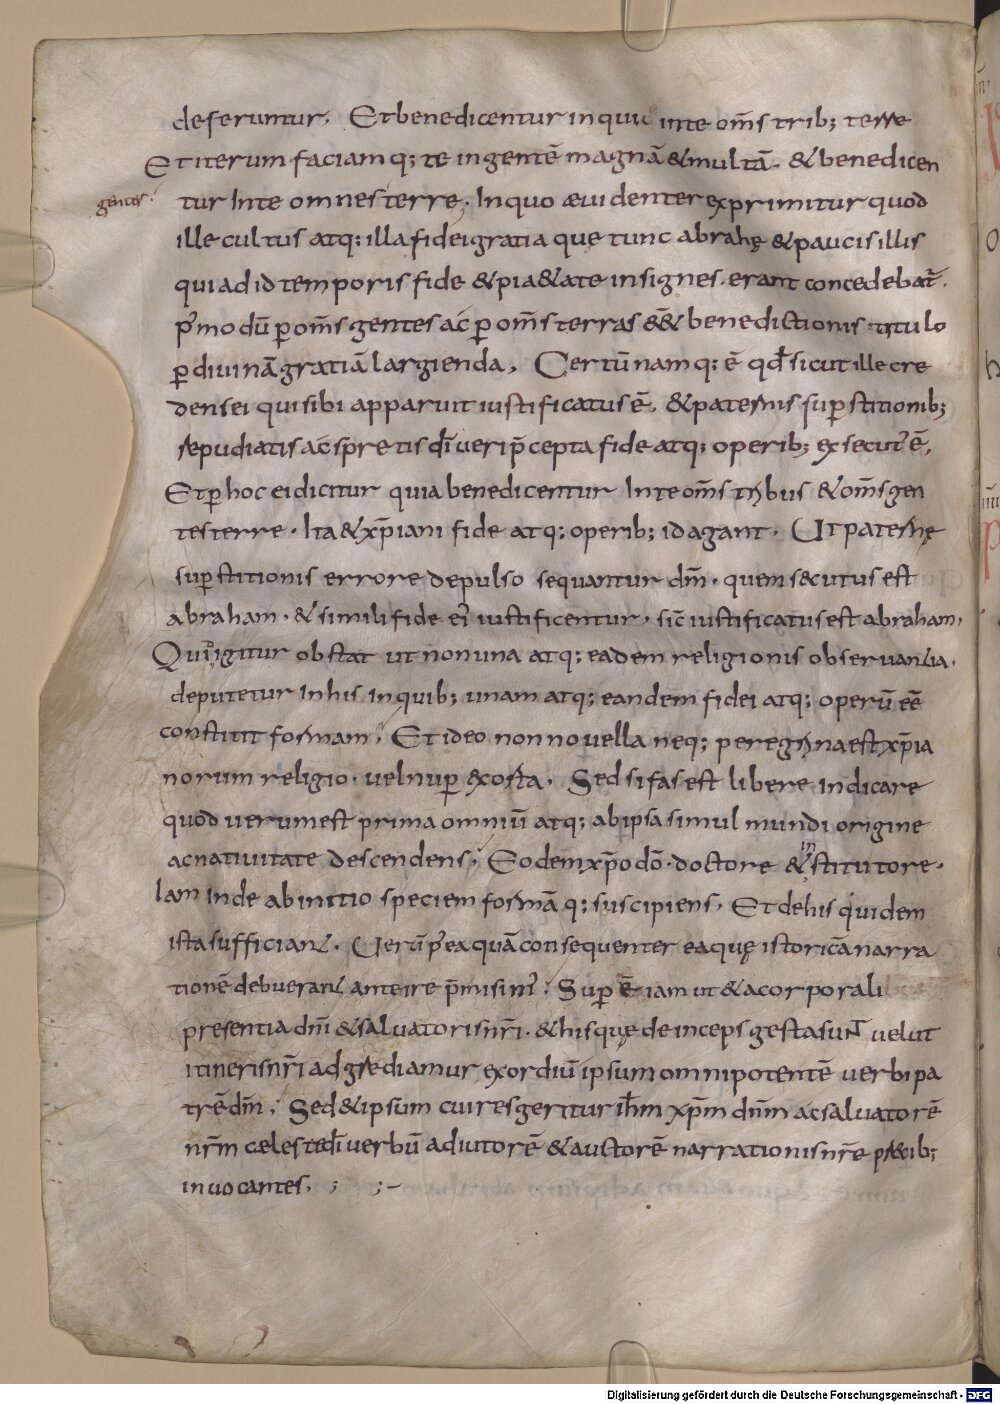 deseruntur. Et benedicentur inquid inte om̄s trib; terre
Et iterum faciamq; te ingentē magnā & multā. & benedicen
gentes. tur Inte omnes terre. In quo æuidenter exprimitur quod
ille cultus atq; illa fidei gratia quę tunc abrahę & paucis illis
qui ad id temporis fide & pia&ate insignes. erant concedebat̄.
p̄ modū ꝑ om̄s gentes ac ꝑ om̄s terras e&& benedictionis titulo
ꝑ diuinā gratiā largienda. Certū namq: ē qđ sicut ille cre
dens ei qui sibi apparuit iustificatus ē. & paternis suꝑstitionib;
repudiatis ac spretis dī ueri p̄cepta fide atq; operib; exsecut᾽ ē.
Et ꝑ hoc ei dicitur quia benedicentur Inte om̄s tribus & om̄s gen
tes terre. Ita & xp̄iani fide atq; operib; id agant. Ut paternę
suꝑstitionis errore depulso sequantur dm̄. quem secutus est
abraham. & simili fide ei᾽ iustificentur. sic̄ iustificatus est abraham.
Quid igitur obstat ut non una atq; eadem religionis obseruantia.
deputetur In his In quib; unam atq; eandem fidei atq; operū eē
constitit formam. Et ideo non nouella neq; peregrina est xp̄ia
norum religio. uel nuꝑ exorta. Sed si fas est libere Indicare
quod uerum est prima omniū atq; ab ipsa simul mundi origine
ac natiuitate descendens. Eodem xp̄o dō. doctore & institutore.
Iam Inde ab initio speciem formāq; suscipiens. Et de his quidem
ista sufficiant. Uerū p̄ ea quā consequenter ea quę istoricā narra
tionē debuerant anteire p̄misim᾽. Suꝑ ē iam ut & a corporali
presentia dn̄i & saluatoris nr̄i. & his quę deinceps gesta sunt uelut
itineris nr̄i adgrediamur exordiū ipsum omnipotentē uerbi pa
trē dm̄. Sed & ipsum cui res geritur ih̄m xp̄m dn̄m ac saluatorē
nr̄m cælestē dī uerbū adiutorē & auctorē narrationis nr̄e precib;
inuocantes. ; ;-
Digitalisierung gefördert durch die Deutsche Forschungsgemeinschaft - DFG